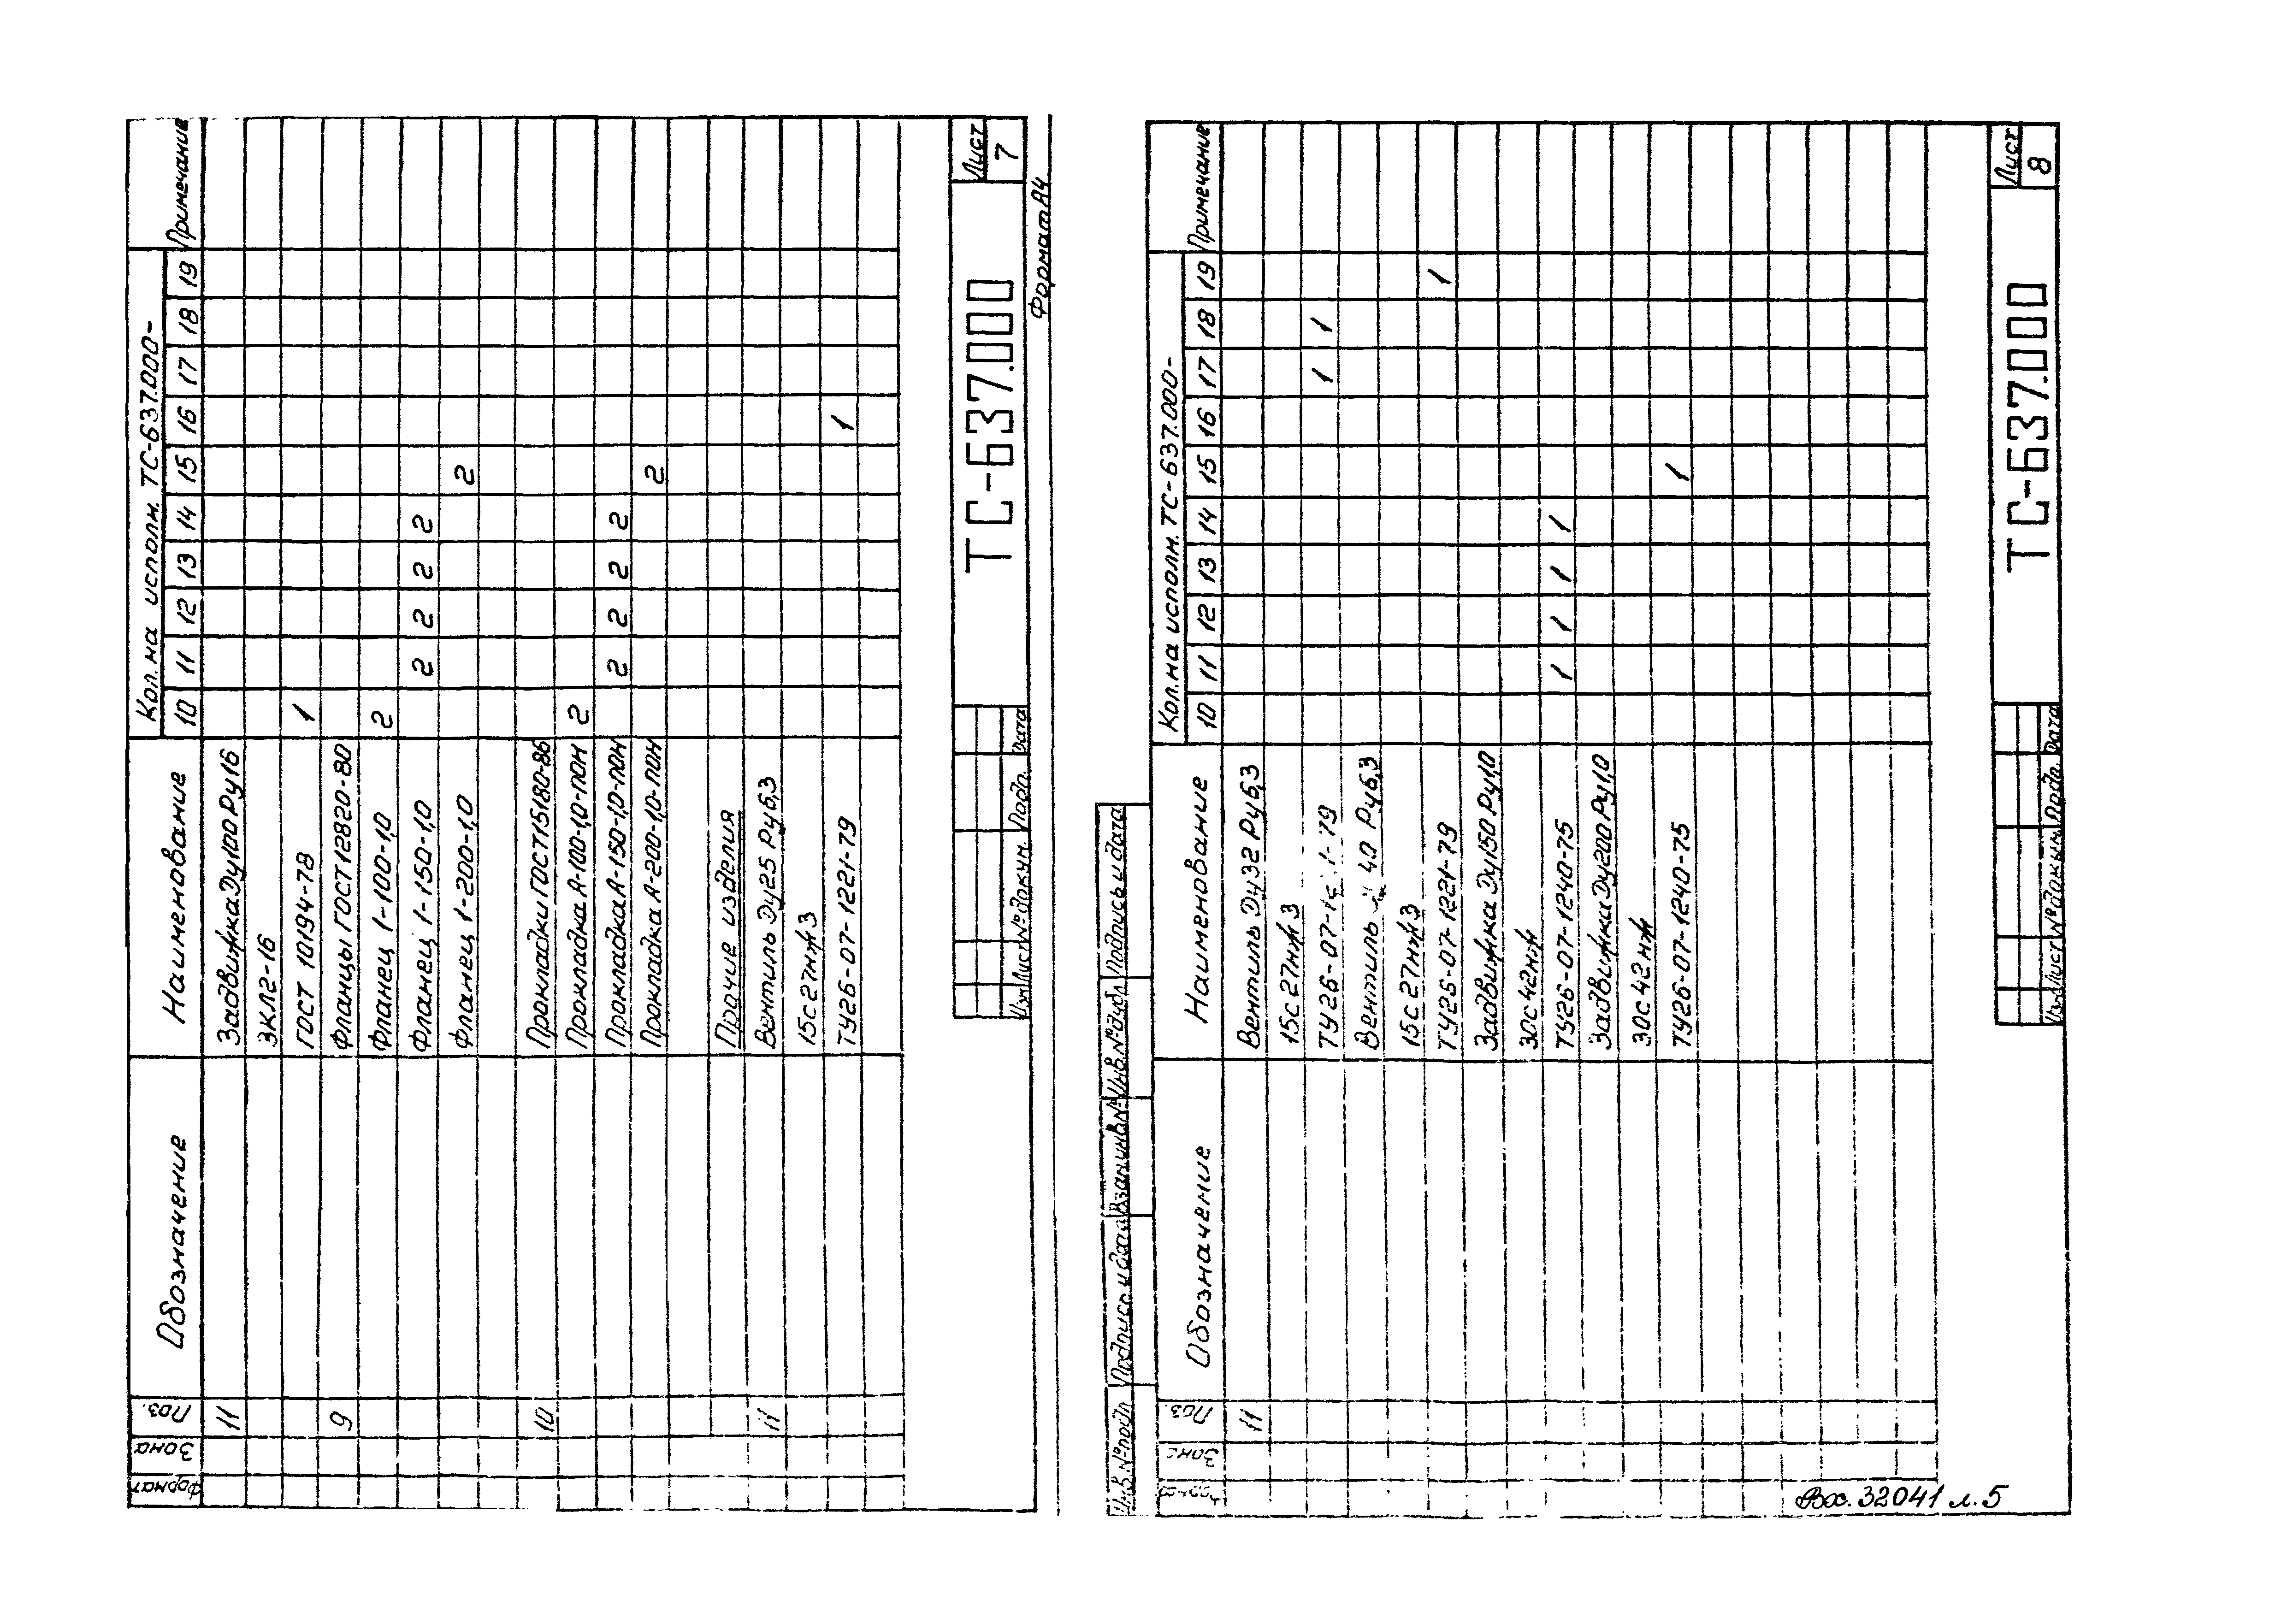 Формат Зона Поз. Обозначение Наименование Кол. на исполн. ТС-637.000- Примечание
10 11 12 13 14 15 16 17 18 19
11 Задвижка Ду100 Ру16
ЗКЛ2-16
ГОСТ 10194-78 1
9 Фланцы ГОСТ 12820-80
Фланец 1-100-1,0 2
Фланец 1-150-1,0 2 2 2 2
Фланец 1-200-1,0 2
10 Прокладки ГОСТ 15180-86
Прокладка А-100-1,0-ПОН 2
Прокладка А-150-1,0-ПОН 2 2 2 2
Прокладка А-200-1,0-ПОН 2
Прочие изделия
11 Вентиль Ду25 Ру6,3
15с27нж3
ТУ26-07-1221-79 1
Изм Лист № докум. Подп. Дата
ТС-637.000
Лист
7
Формат А4
Инв. № подл Подпись и дата Взам инв. № Инв. № дубл Подпись и дата
Формат Зона Поз. Обозначение Наименование Кол. на исполн. ТС-637.000- Примечание
10 11 12 13 14 15 16 17 18 19
11 Вентиль Ду32 Ру6,3
15с27нж3
ТУ26-07- 1-79 1 1
Вентиль 40 Ру6,3
15с27нж3
ТУ26-07-1221-79 1
Задвижка Ду150 Ру1,0
30с42нж
ТУ26-07-1240-75 1 1 1 1
Задвижка Ду200 Ру1,0
30с42нж
ТУ26-07-1240-75 1
Изм Лист № докум. Подп. Дата
ТС-637.000
Лист
8
32041 л. 5